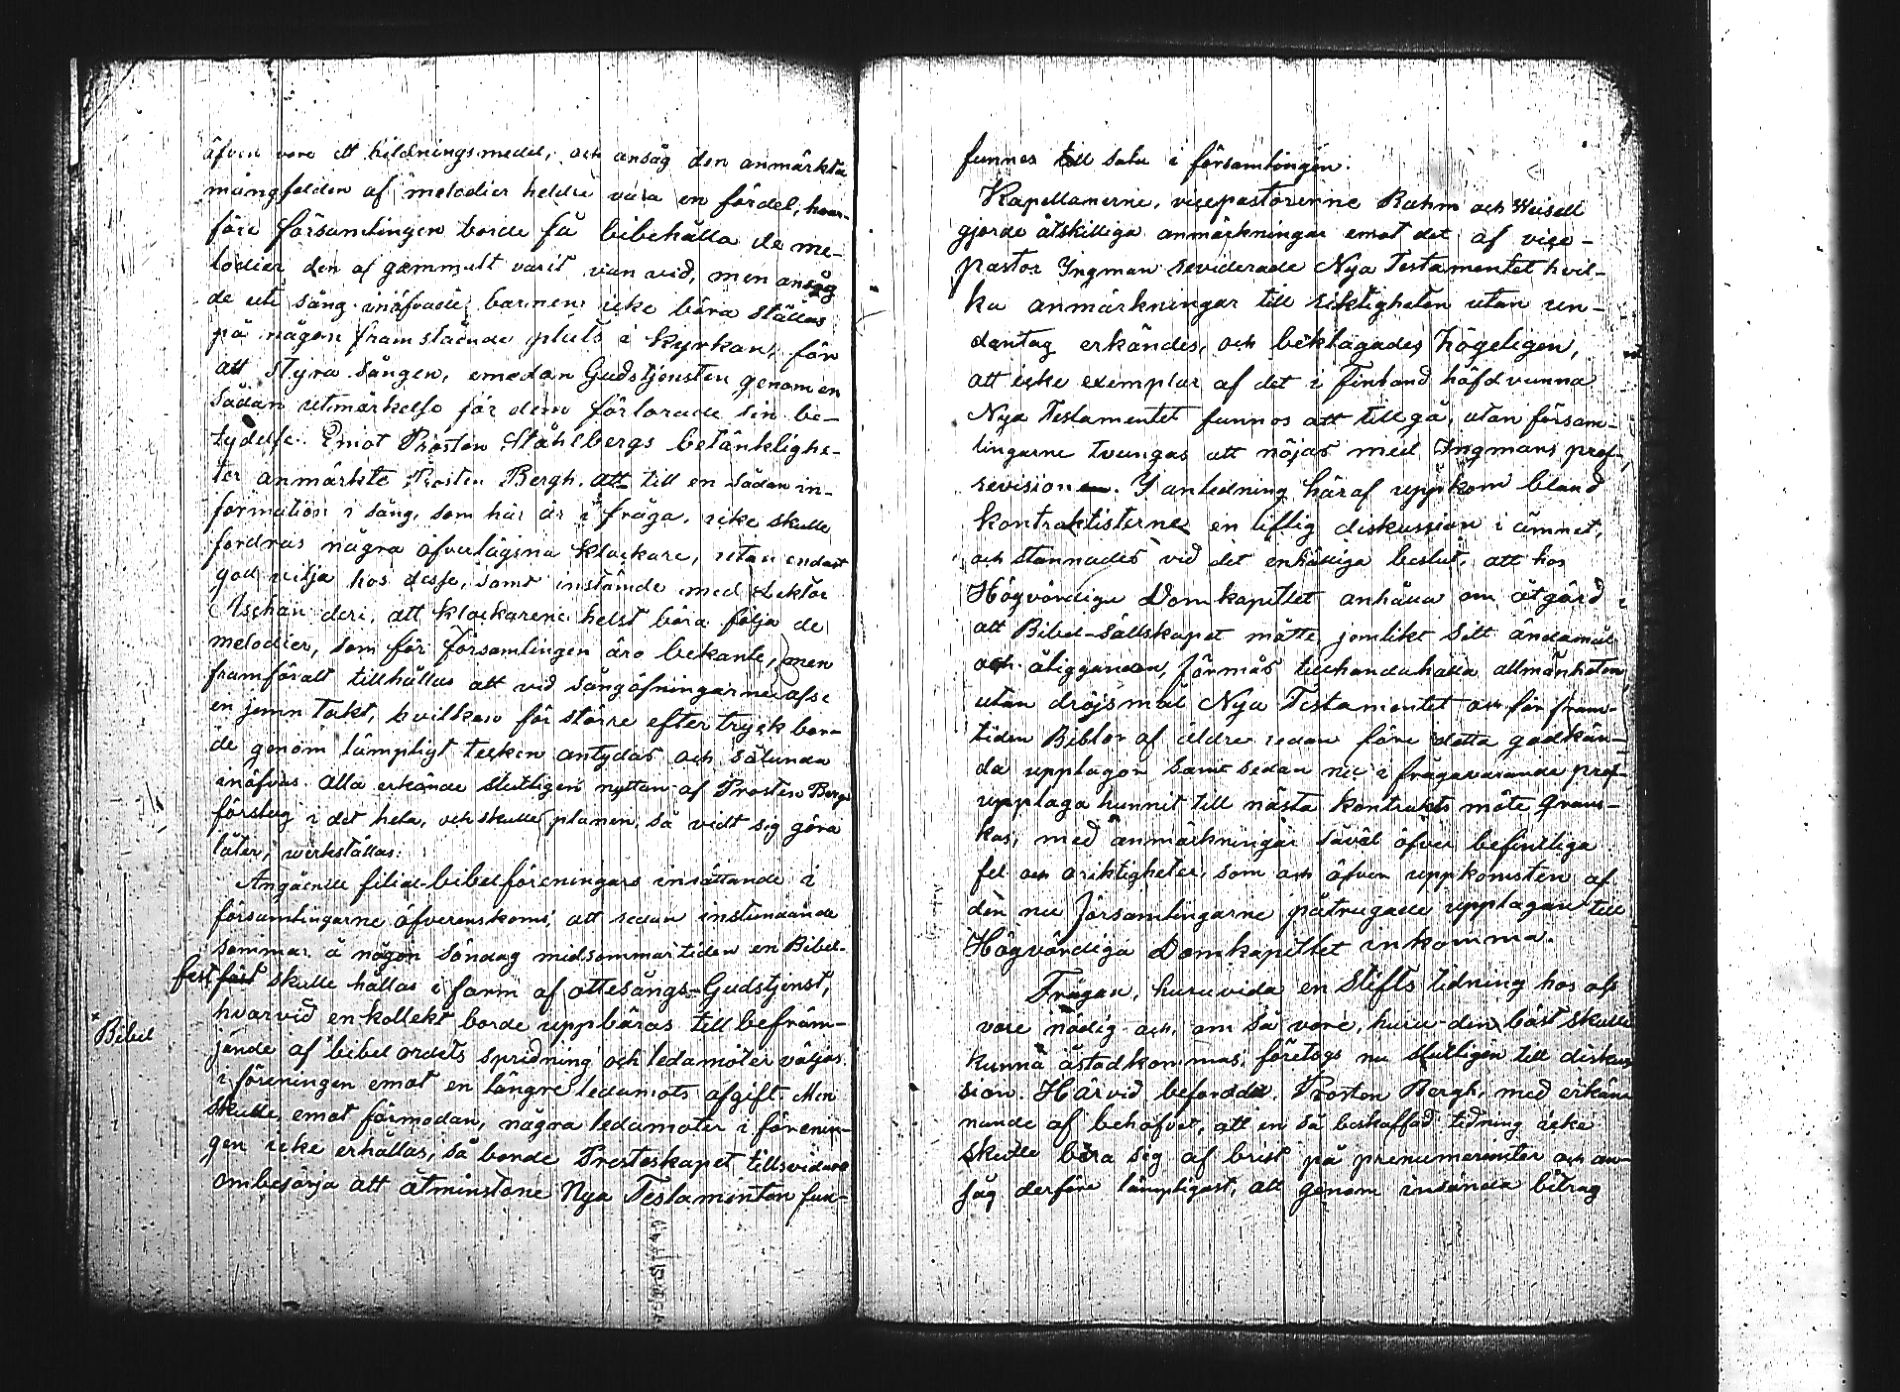 äfven vore ett bildningsmedel, och ansåg den anmärkta
mångfalden af melodier heldre vara en fördel, hvar-
före församlingen borde få bibehålla de me-
lodier den af gammalt varit van vid, men ansåg
de uti sång inöfvade barnen icke böra ställas
på någon framstående plats i Kyrkan, för
att styra sången, emedan Gudstjensten genom en
sådan utmärkelse för dem förlorade sin be-
tydelse. Emot Prosten Ståhlbergs betänklighe-
ter anmärkte Prosten Bergh, att till en sådan in-
formation i sång, som här är i fråga, icke skulle
fordras några öfverlägsna klockare, utan endast
god vilja hos desse, samt instämde med Lektor
deri, att klockarene helst böra följa de
melodier, som för församlingen äro bekante, men
framförallt tillhållas att vid sångöfningarne afse
en jemn takt, hvilken för större eftertryck bor-
de genom lämpligt tecken antydas och sålunda
inöfvas. Alla erkände slutligen nyttan af Prosten Berghs
förslag i det hela, och skulle planen, så vidt sig göra
låter, verkställas.
Angående filial-bibelföreningars insättande i
församlingarne öfverenskoms, att sedan instundande
sommar å någon söndag midsommartiden en Bibel-
fest skulle hållas i form af ottesångs-Gudstjenst,
hvarvid en kollekt borde uppbäras till befräm-
× Bibel
jande af bibelordets spridning och ledamöter väljas
i föreningen emot en längre ledamots afgift. Men
skulle, emot förmodan, några ledamöter i förenin-
gen icke erhållas, så borde Presteskapet tillsvidare
ombesörja att åtminstone Nya Testamenten fun-
funnes till salu i församlingen.
Kapellanerne, vicepastorerne Rahm och Weisell
gjorde åtskilliga anmärkningar emot det af vice-
pastor Ingman reviderade Nya Testamentet hvil-
ka anmärkningar till riktigheten utan un-
dantag erkändes, och beklagades högeligen,
att icke exemplar af det i Finland häfdvunna
Nya Testamentet funnos att tillgå, utan försam-
lingarne tvungas att nöjas med Ingmans prof-
revision. I anledning häraf uppkom bland
kontraktisterne en liflig diskussion i ämnet,
och stannades vid det enhälliga beslut, att hos
Högvördiga Domkapitlet anhålla om åtgärd
att Bibel-Sällskapet måtte jemlikt sitt ändamål
och åligganden, förmås tillhandahålla allmänheten
utan dröjsmål Nya Testamentet och för fram-
tiden Biblar af äldre redan före detta godkän-
da upplagor samt sedan nu i frågavarande prof-
upplaga hunnit till nästa kontrakts möte grans-
kas, med anmärkningar såväl öfver befintliga
fel och oriktigheter, som ock öfver uppkomsten af
den nu församlingarne påtrugade upplagan till
Högvördiga Domkapitlet inkomma.
Frågan, huruvida en Stifts tidning hos oss
vore nödig och, om så vore, huru den bäst skulle
kunna åstadkommas, företogs nu slutligen till diskus-
sion. Härvid befarade Prosten Bergh, med erkän-
nande af behofvet, att en så beskaffad tidning icke
skulle bära sig af brist på prenumeranter och an-
såg derföre lämpligast, att genom insända bidrag